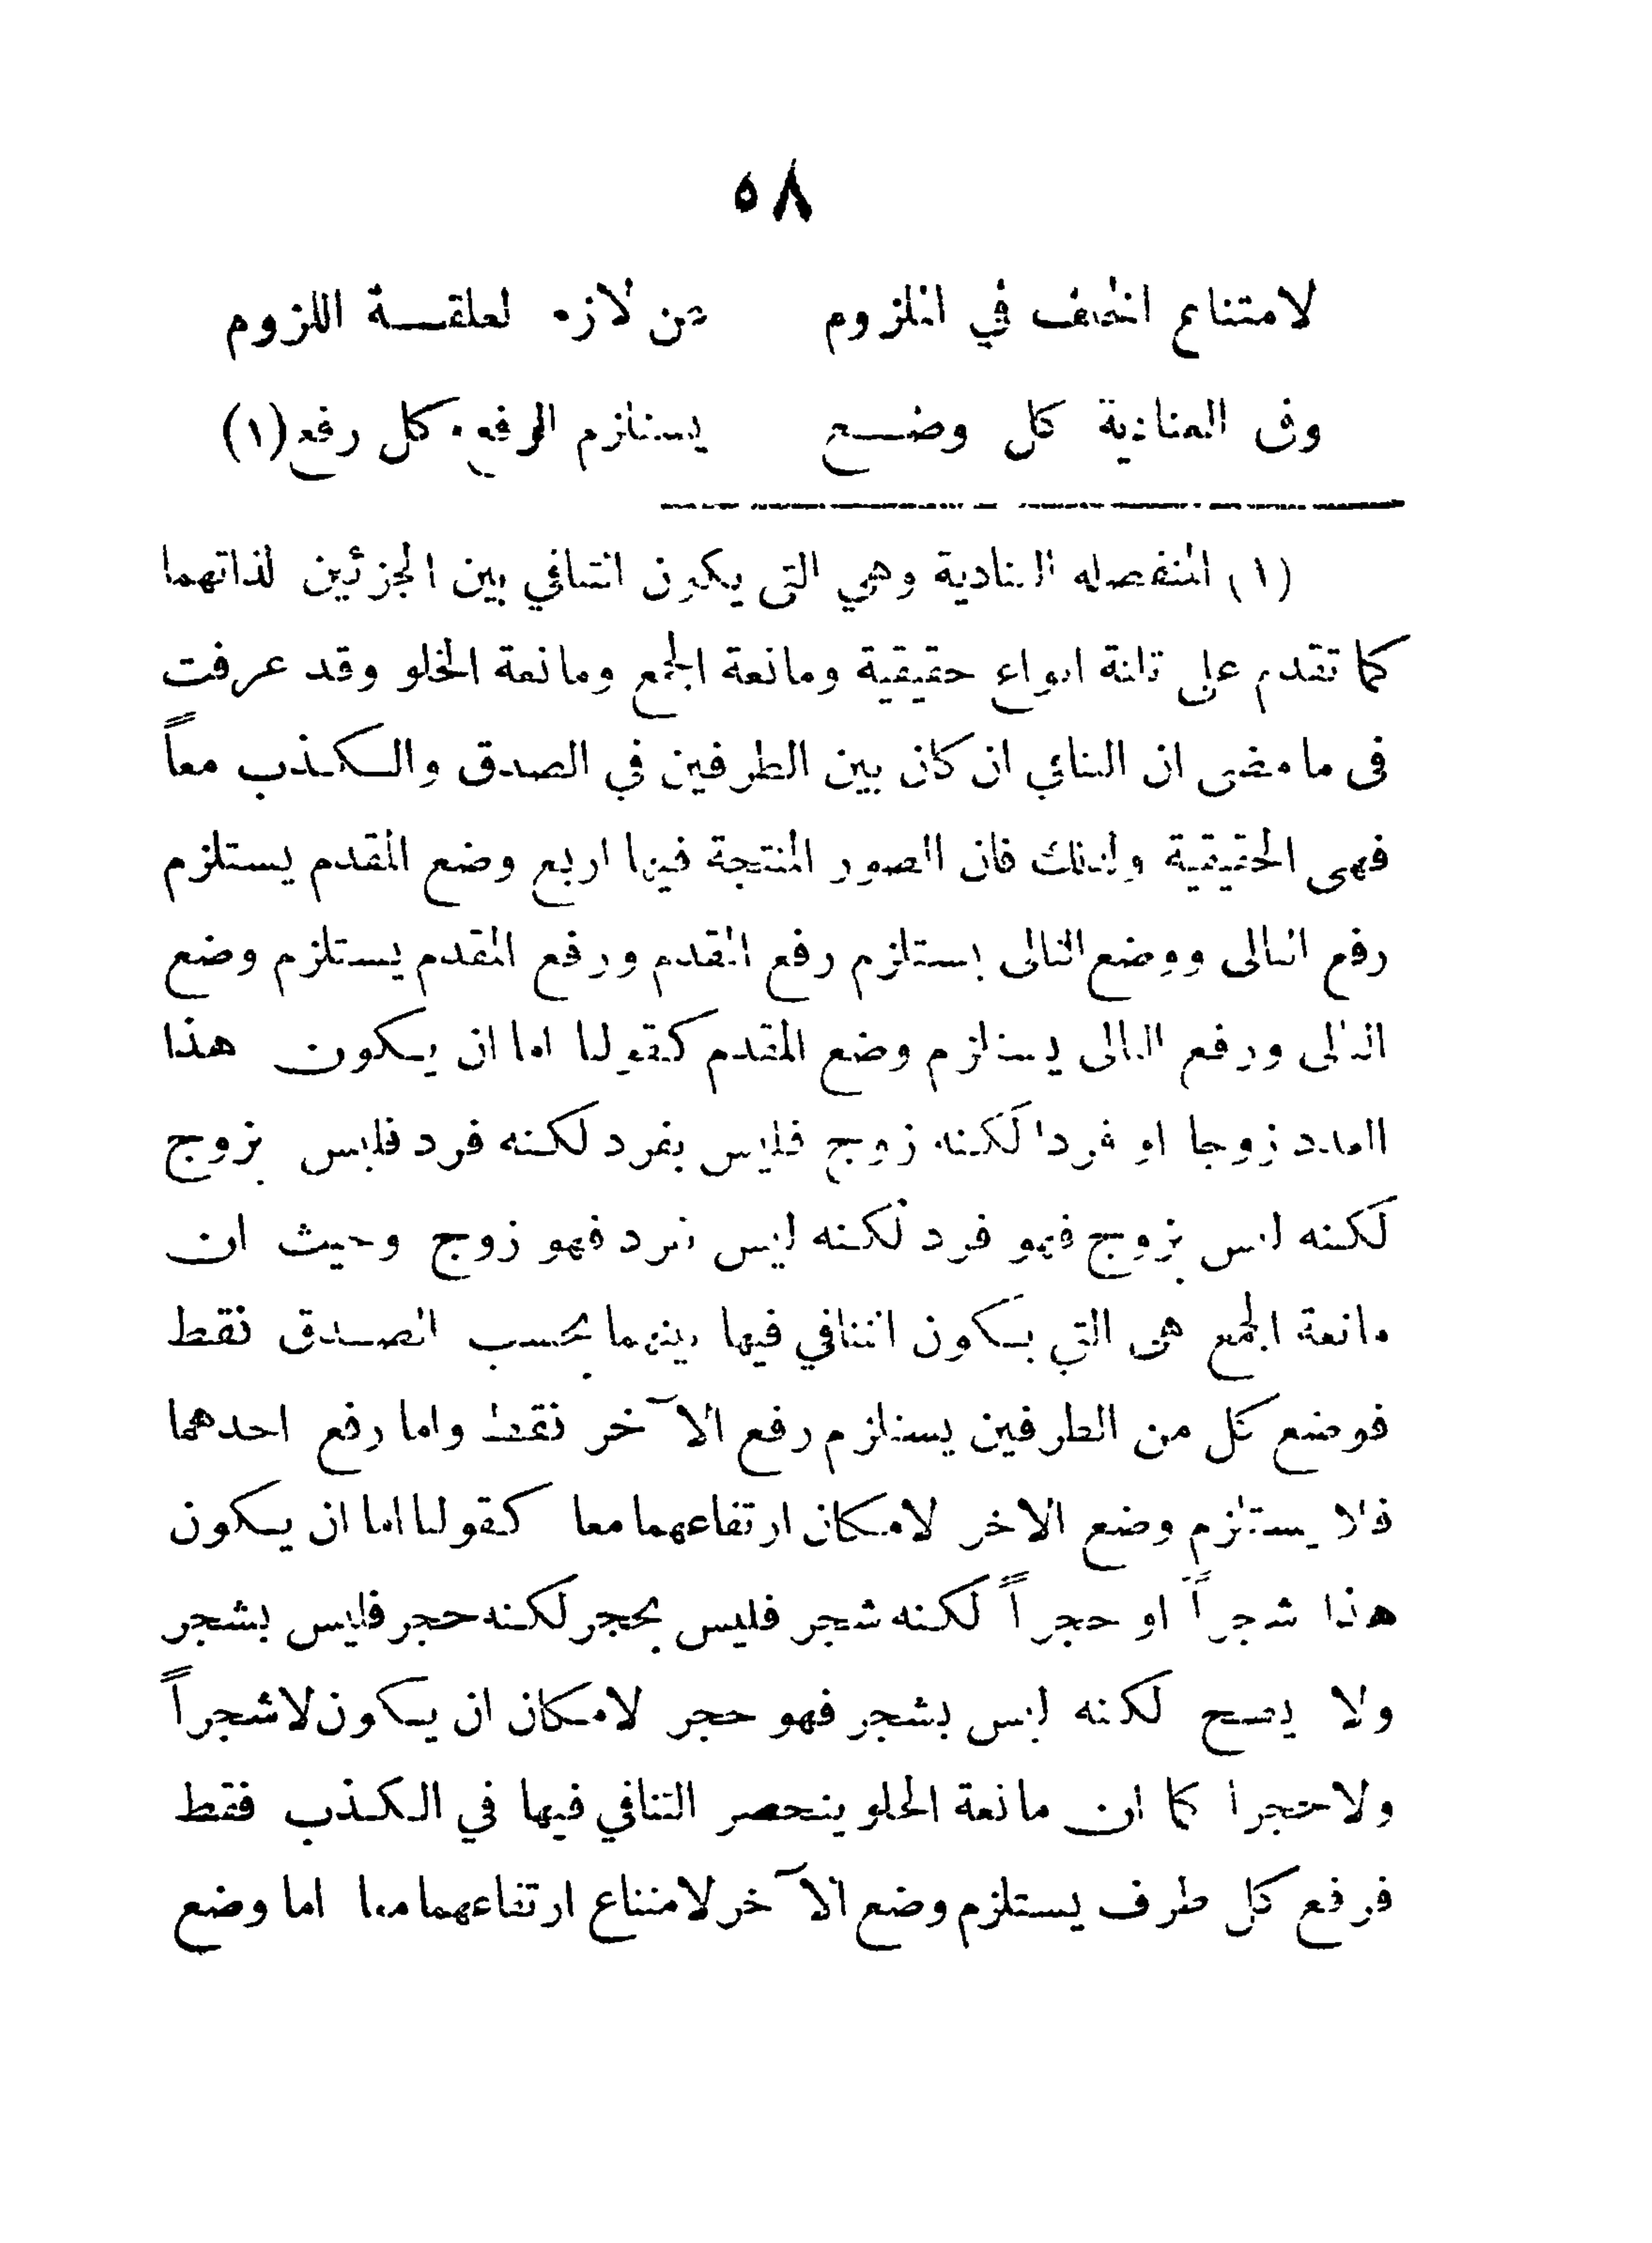 ٥٨
لامتناع التخلف في الملزوم من لازم لعلقة اللزوم
وفى العنادية كل وضع يستلزم الرفع وكل رفع (١)
(١) المنفصله العنادية وهي التى يكون التنافي بين الجزئين لذاتهما
كما تقدم على ثلثة انواع حقيقية ومانعة الجمع ومانعة الخلو وقد عرفت
فى ما مضى ان التنافي ان كان بين الطرفين في الصدق والكذب معاً
فهى الحقيقية ولذلك فان الصور المنتجة فيها اربع وضع المقدم يستلزم
رفع التالى ووضع التالى يستلزم رفع المقدم ورفع المقدم يستلزم وضع
التالى ورفع التالى يستلزم وضع المقدم كقولنا اما ان يكون هذا
العدد زوجا او فردا لكنه زوج فليس بفرد لكنه فرد فليس بزوج
لكنه ليس بزوج فهو فرد لكنه ليس بفرد فهو زوج وحيث ان
مانعة الجمع هى التي يكون التنافي فيها بينهما بحسب الصدق فقط
فوضع كل من الطرفين يستلزم رفع الآخر فقط واما رفع احدهما
فلا يستلزم وضع الاخر لامكان ارتفاعهما معا كقولنا اما ان يكون
هذا شجراً او حجراً لكنه شجر فليس بحجر لكنه حجر فليس بشجر
ولا يصح لكنه ليس بشجر فهو حجر لامكان ان يكون لا شجراً
ولا حجرا كما ان مانعة الخلو ينحصر التنافي فيها في الكذب فقط
فرفع كل طرف يستلزم وضع الآخر لامتناع ارتفاعهما معا اما وضع